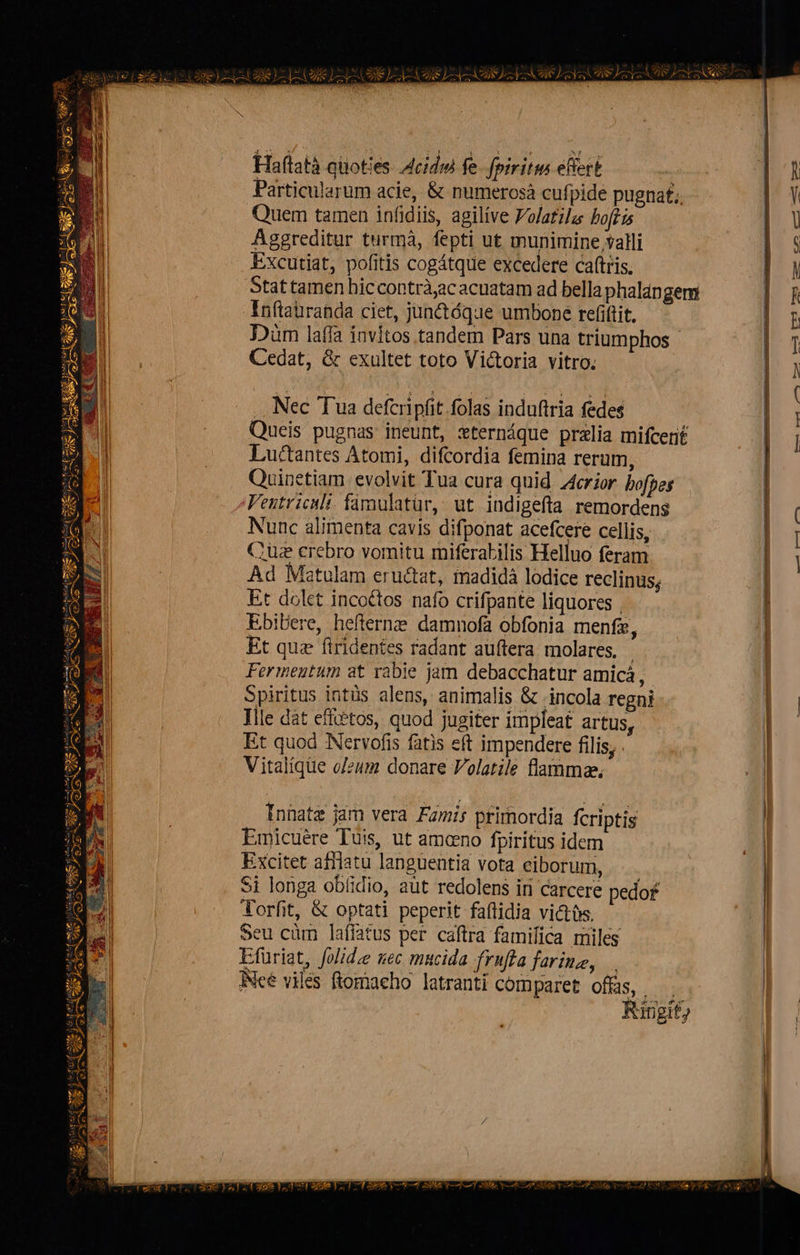 Haſtatà quoties Acidus ſe ſpiritus effert
Particularum acie, & numerosâ cuſpide pugnat;
Quem tamen inſidiis, agilíve Volatilis hoſtis
Aggreditur turmà, ſepti ut munimine valli
Excutiat, poſitis cogátque excedere caſtris.
Stat tamen hic contrà, ac acuatam ad bella phalangem
Inſtauranda ciet, junctóque umbone reſiſtit.
Dùm laſſa invitos tandem Pars una triumphos
Cedat, & exultet toto Victoria vitro.
Nec Tua deſcripſit ſolas induſtria ſedes
Queis pugnas ineunt, æternáque prælia miſcent
Luctantes Atomi, diſcordia ſemina rerum,
Quinetiam evolvit Tua cura quid Acrior hoſpes
Ventriculi famulatur, ut indigeſta remordens
Nunc alimenta cavis diſponat aceſcere cellis,
Quæ crebro vomitu miſerabilis Helluo feram
Ad Matulam eructat, madidà lodice reclinus,
Et dolet incoctos naſo criſpante liquores
Ebibere, heſternæ damnoſa obſonia menſæ,
Et quæ ſtridentes radant auſtera molares.
Fermentum at rabie jam debacchatur amicà,
Spiritus intùs alens, animalis & incola regni
Ille dat effœtos, quod jugiter impleat artus,
Et quod Nervoſis fatis eſt impendere filis,
Vitalíque oleum donare Volatile flammæ.
Innatæ jam vera Famis primordia ſcriptis
Emicuère Tuis, ut amœno ſpiritus idem
Excitet afflatu languentia vota ciborum,
Si longa obſidio, aut redolens in carcere pedor
Torſit, & optati peperit faſtidia victûs.
Seu cùm laſſatus per caſtra familica miles
Eſuriat, ſolidæ nec mucida fruſta farinæ,
Nec viles ſtomacho latranti comparet offas,
Ringit,